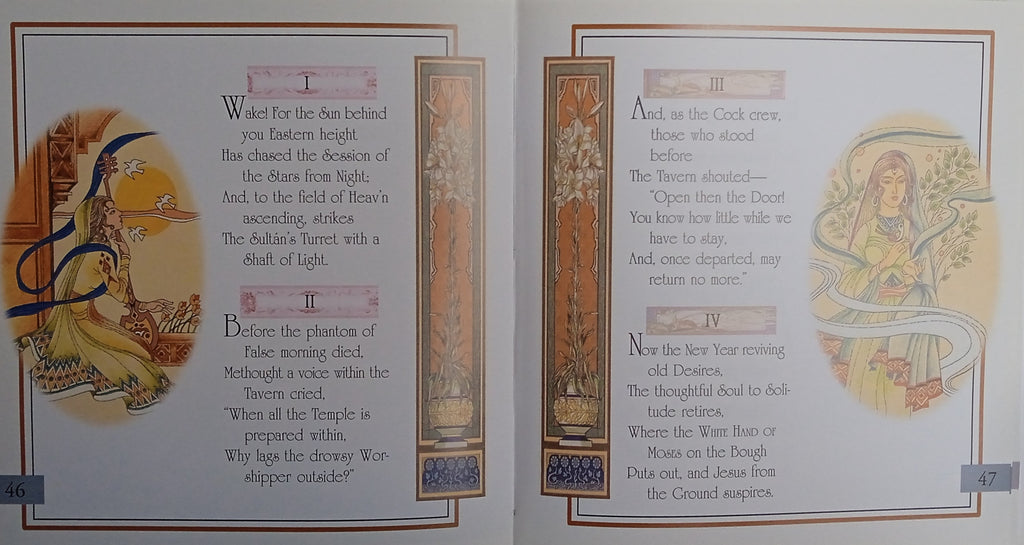 I
Wake! For the Sun behind
you Eastern height
Has chased the Session of
the Stars from Night;
And, to the field of Heav'n
ascending, strikes
The Sultán's Turret with a
Shaft of Light.
II
Before the phantom of
False morning died,
Methought a voice within the
Tavern cried,
"When all the Temple is
prepared within,
Why lags the drowsy Wor-
shipper outside?"
46
III
And, as the Cock crew,
those who stood
before
The Tavern shouted—
"Open then the Door!
You know how little while we
have to stay,
And, once departed, may
return no more."
IV
Now the New Year reviving
old Desires,
The thoughtful Soul to Soli-
tude retires,
Where the WHITE HAND OF
MOSES on the Bough
Puts out, and Jesus from
the Ground suspires.
47